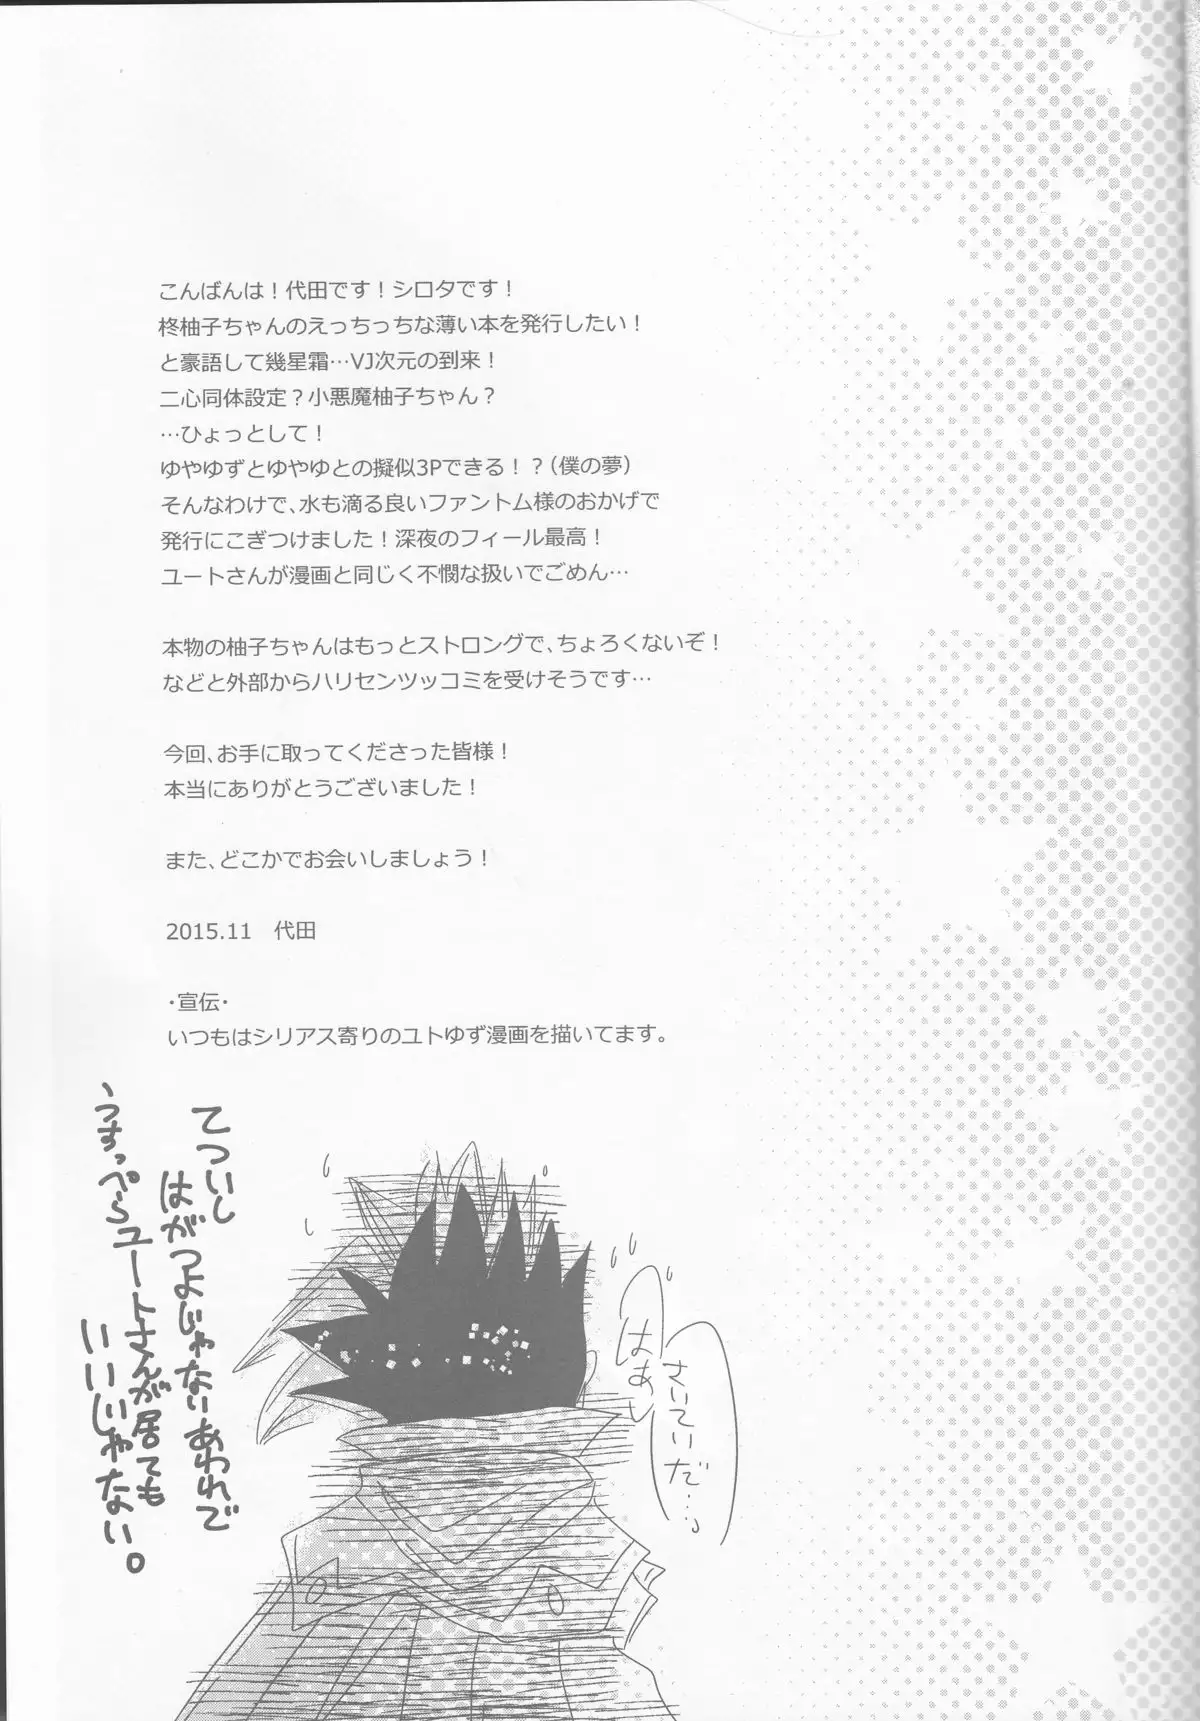 こんばんは！代田です！シロタです！
柊柚子ちゃんのえっちっちな薄い本を発行したい！
と豪語して幾星霜…VJ次元の到来！
二心同体設定？小悪魔柚子ちゃん？
…ひょっとして！
ゆやゆずとゆやゆとの擬似3Pできる！？（僕の夢）
そんなわけで、水も滴る良いファントム様のおかげで
発行にこぎつけました！深夜のフィール最高！
ユートさんが漫画と同じく不憫な扱いでごめん…
本物の柚子ちゃんはもっとストロングで、ちょろくないぞ！
などと外部からハリセンツッコミを受けそうです…
今回、お手に取ってくださった皆様！
本当にありがとうございました！
また、どこかでお会いしましょう！
2015.11　代田
・宣伝・
いつもはシリアス寄りのユトゆず漫画を描いてます。
さいていだ…。
はぁ
てついし
はがつよじゃないあわれで
うすっぺらユートさんが居ても
いいじゃない。